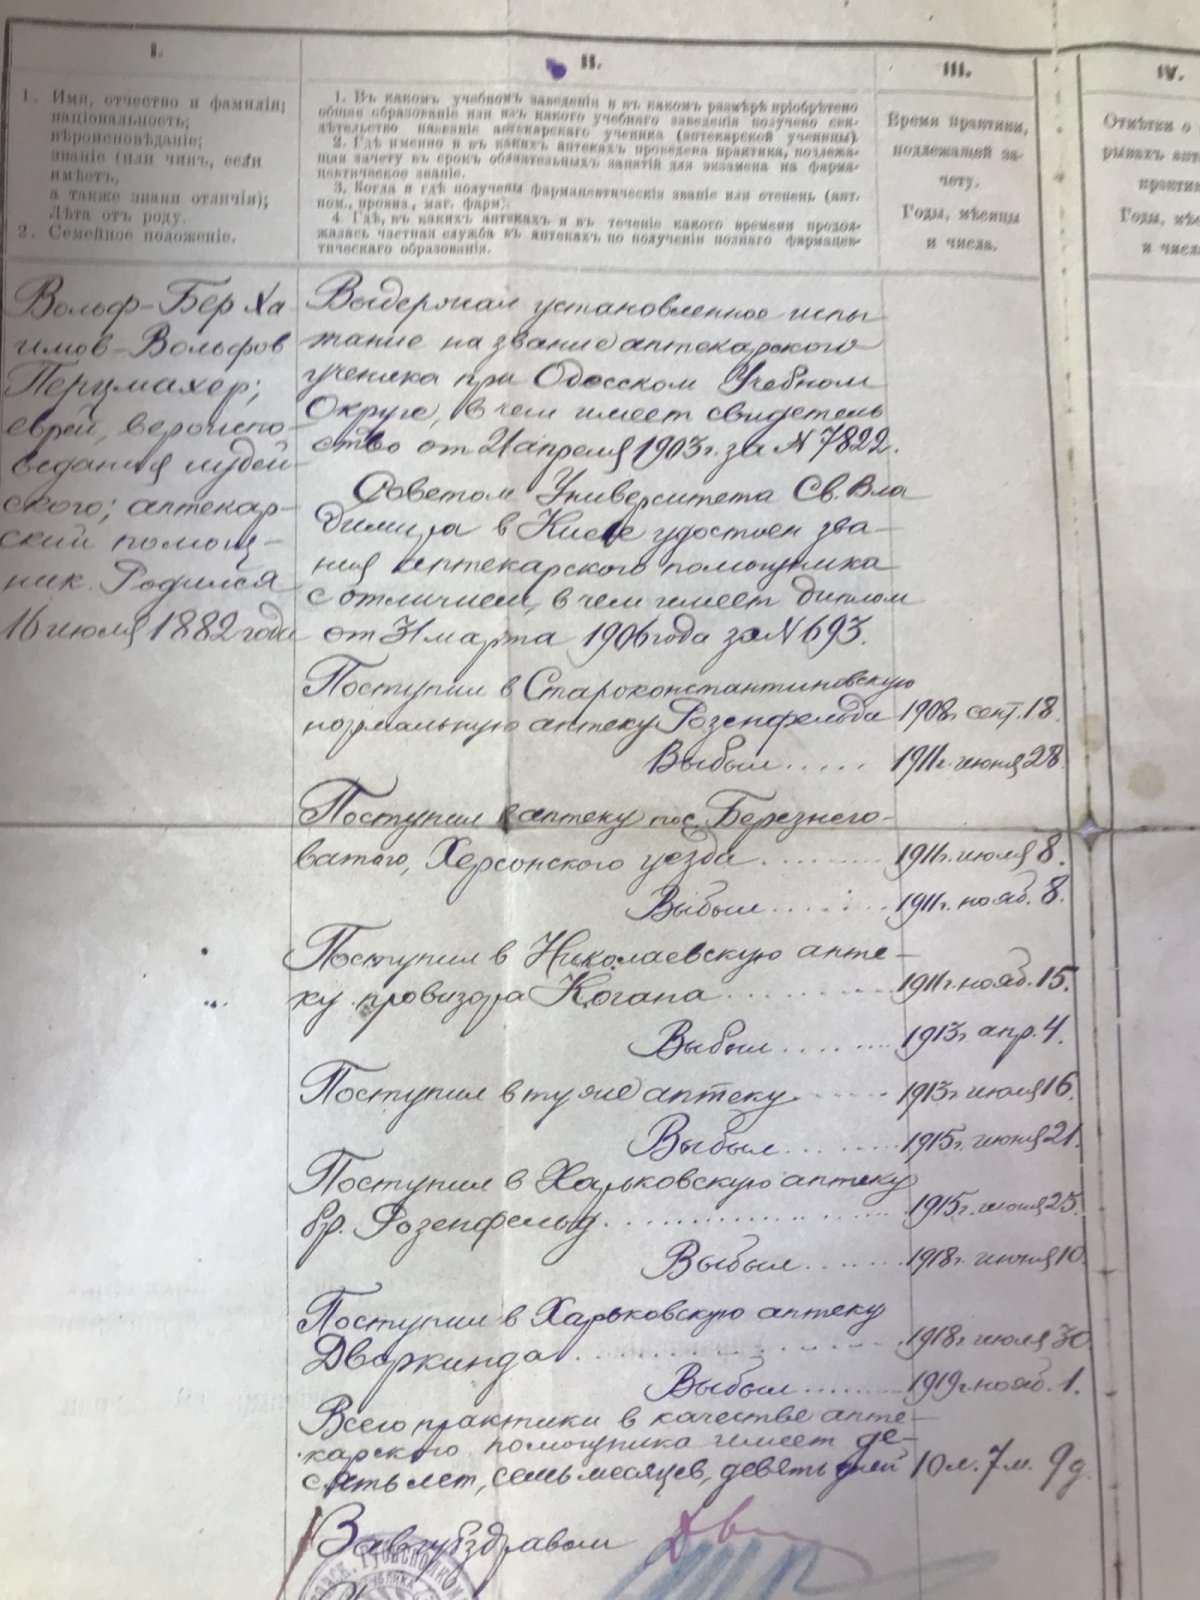 I.
1. Имя, отчество и фамилія;
національность;
вѣроисповѣданіе;
званіе (или чинъ, если
имѣетъ,
а также знаки отличія);
Лѣта отъ роду.
2. Семейное положеніе.
II.
1. Въ какомъ учебномъ заведеніи и въ какомъ размѣрѣ пріобрѣтено
общее образованіе или изъ какого учебнаго заведенія получено сви-
дѣтельство названіе аптекарскаго ученика (аптекарской ученицы).
2. Гдѣ именно и въ какихъ аптекахъ проведена практика, подлежа-
щая зачету въ срокъ обязательныхъ занятій для экзамена на фарма-
цевтическое званіе.
3. Когда и гдѣ получены фармацевтическія званіе или степень (апт.
пом., провиз., маг. фарм).
4 Гдѣ, въ какихъ аптекахъ и въ теченіе какого времени продол-
жалась частная служба въ аптекахъ по полученіи полнаго фармацев-
тическаго образованія.
III.
Время практики,
подлежащей за-
чету.
Годы, мѣсяцы
и числа.
IV.
Отмѣтки о
рывахъ апт
практик
Годы, мѣс
и числ
Вольф-Бер Ха
имов-Вольфов
Перцмахер;
еврей, вероиспо-
ведания иудей-
ского; аптекар-
ский помощ-
ник. Родился
16 июля 1882 года
Выдержал установленное испы
тание на звание аптекарского
ученика при Одесском Учебном
Округе, в чем имеет свидетель
ство от 21 апреля 1903 г. за N 7822.
Советом Университета Св. Вла
димира в Киеве удостоен зва-
ния аптекарского помощника
с отличием, в чем имеет диплом
от 31 марта 1906 года за N 693.
Поступил в Староконстантиновскую
нормальную аптеку Розенфельда 1908 г. сент. 18.
Выбыл..... 1911 г. июня 28
Поступил в аптеку пос. Березнего-
ватого, Херсонского уезда ........ 1911 г. июля 8.
Выбыл........ 1911 г. нояб. 8.
Поступил в Николаевскую апте-
ку провизора Когана .......... 1911 г. нояб. 15.
Выбыл........ 1913 г. апр. 4.
Поступил в ту же аптеку...... 1913 г. июля 16.
Выбыл........ 1915 г. июня 21.
Поступил в Харьковскую аптеку
бр. Розенфельд................ 1915 г. июня 25.
Выбыл....... 1918 г. июня 10.
Поступил в Харьковскую аптеку
Дворкинда................ 1918 г. июля 30
Выбыл........ 1919 г. нояб. 1.
Всего практики в качестве апте-
карского помощника имеет де-
сять лет, семь месяцев, девять дней 10 л. 7 м. 9 д.
Завгубздравом